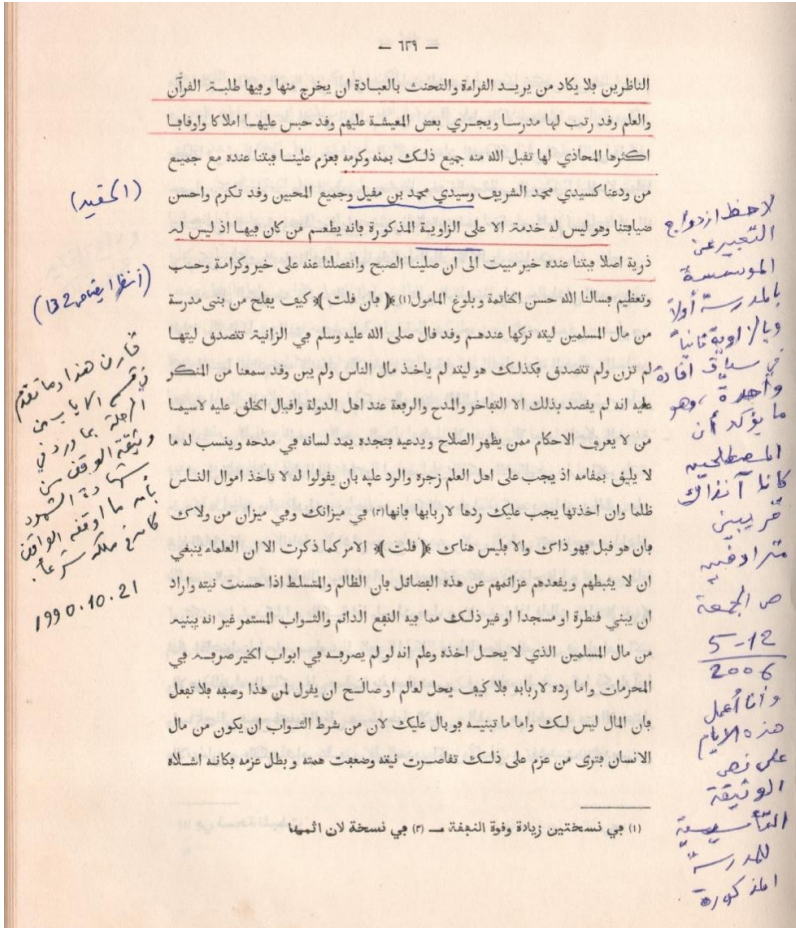 — ٦٢٩ —
الناظرين فلا يكاد من يريد القراءة والتحنث بالعبادة ان يخرج منها وفيها طلبة القرآن
والعلم وقد رتب لها مدرسا ويجري بعض المعيشة عليهم وقد حبس عليها املاكا واوقافا
اكثرها المحاذي لها تقبل الله منه جميع ذلك بمنه وكرمه فعزم علينا فبتنا عنده مع جميع
من ودعنا كسيدي محمد الشريف وسيدي محمد بن مقيل وجميع المحبين وقد تكرم واحسن
ضيافتنا وهو ليس له خدمة الا على الزاوية المذكورة فانه يطعم من كان فيها اذ ليس له
ذرية اصلا فبتنا عنده خير مبيت الى ان صلينا الصبح وانفصلنا عنه على خير وكرامة وحسب
وتعظيم فسالنا الله حسن الخاتمة وبلوغ المامول(١) ﴿فان قلت﴾ كيف يفلح من بنى مدرسة
من مال المسلمين ليته تركها عندهم وقد قال صلى الله عليه وسلم في الزانية تتصدق ليتها
لم تزن ولم تتصدق فكذلك هو ليته لم ياخذ مال الناس ولم يبن وقد سمعنا من المنكر
عليه انه لم يقصد بذلك الا التفاخر والمدح والرفعة عند اهل الدولة واقبال الخلق عليه لاسيما
من لا يعرف الاحكام ممن يظهر الصلاح ويدعيه فتجده يمد لسانه في مدحه وينسب له ما
لا يليق بمقامه اذ يجب على اهل العلم زجره والرد عليه بان يقولوا له لا تاخذ اموال الناس
ظلما وان اخذتها يجب عليك ردها لاربابها فانها(٢) في ميزانك وفي ميزان من ولاك
فان هو قبل فهو ذاك والا فليس هناك ﴿قلت﴾ الامر كما ذكرت الا ان العلماء ينبغي
ان لا يثبطهم ويقعدهم عزائمهم عن هذه الفضائل فان الظالم والمتسلط اذا حسنت نيته واراد
ان يبني قنطرة او مسجدا او غير ذلك مما فيه النفع الدائم والثواب المستمر غير انه يبنيه
من مال المسلمين الذي لا يحل اخذه وعلم انه لو لم يصرفه في ابواب الخير صرفه في
المحرمات واما رده لاربابه فلا كيف يحل لعالم او صالح ان يقول لمن هذا وصفه فلا تفعل
فان المال ليس لك واما ما تبنيه فوبال عليك لان من شرط الثواب ان يكون من مال
الانسان فترى من عزم على ذلك تقاصرت نيته وضعفت همته وبطل عزمه فكانه اشلاه
(١) في نسختين زيادة وقوة النجفة — (٢) في نسخة لان اثمها
لاحظ ازدواج
التعبير عن
المؤسسة
بالمدرسة أولاً
وبالزاوية ثانياً
في سياق افادة
واحدة، وهو
ما يؤكد أن
المصطلحين
كانا آنذاك
قريبين
مترادفين
ص الجمعة
5-12
2006
وأنا أعمل
هذه الايام
على نص
الوثيقة
التأسيسية
للمدرسة
المذكورة
(الحقيد)
(أنظر ايضا ص 132)
قارن هذا وما تقدم
في قسم الاياب من
الرحلة بما ورد في
وثيقة الوقف من
شهادة الشهود
بأنه ما أوقفه الواقف
كان في ملكه شرعا.
1990.10.21